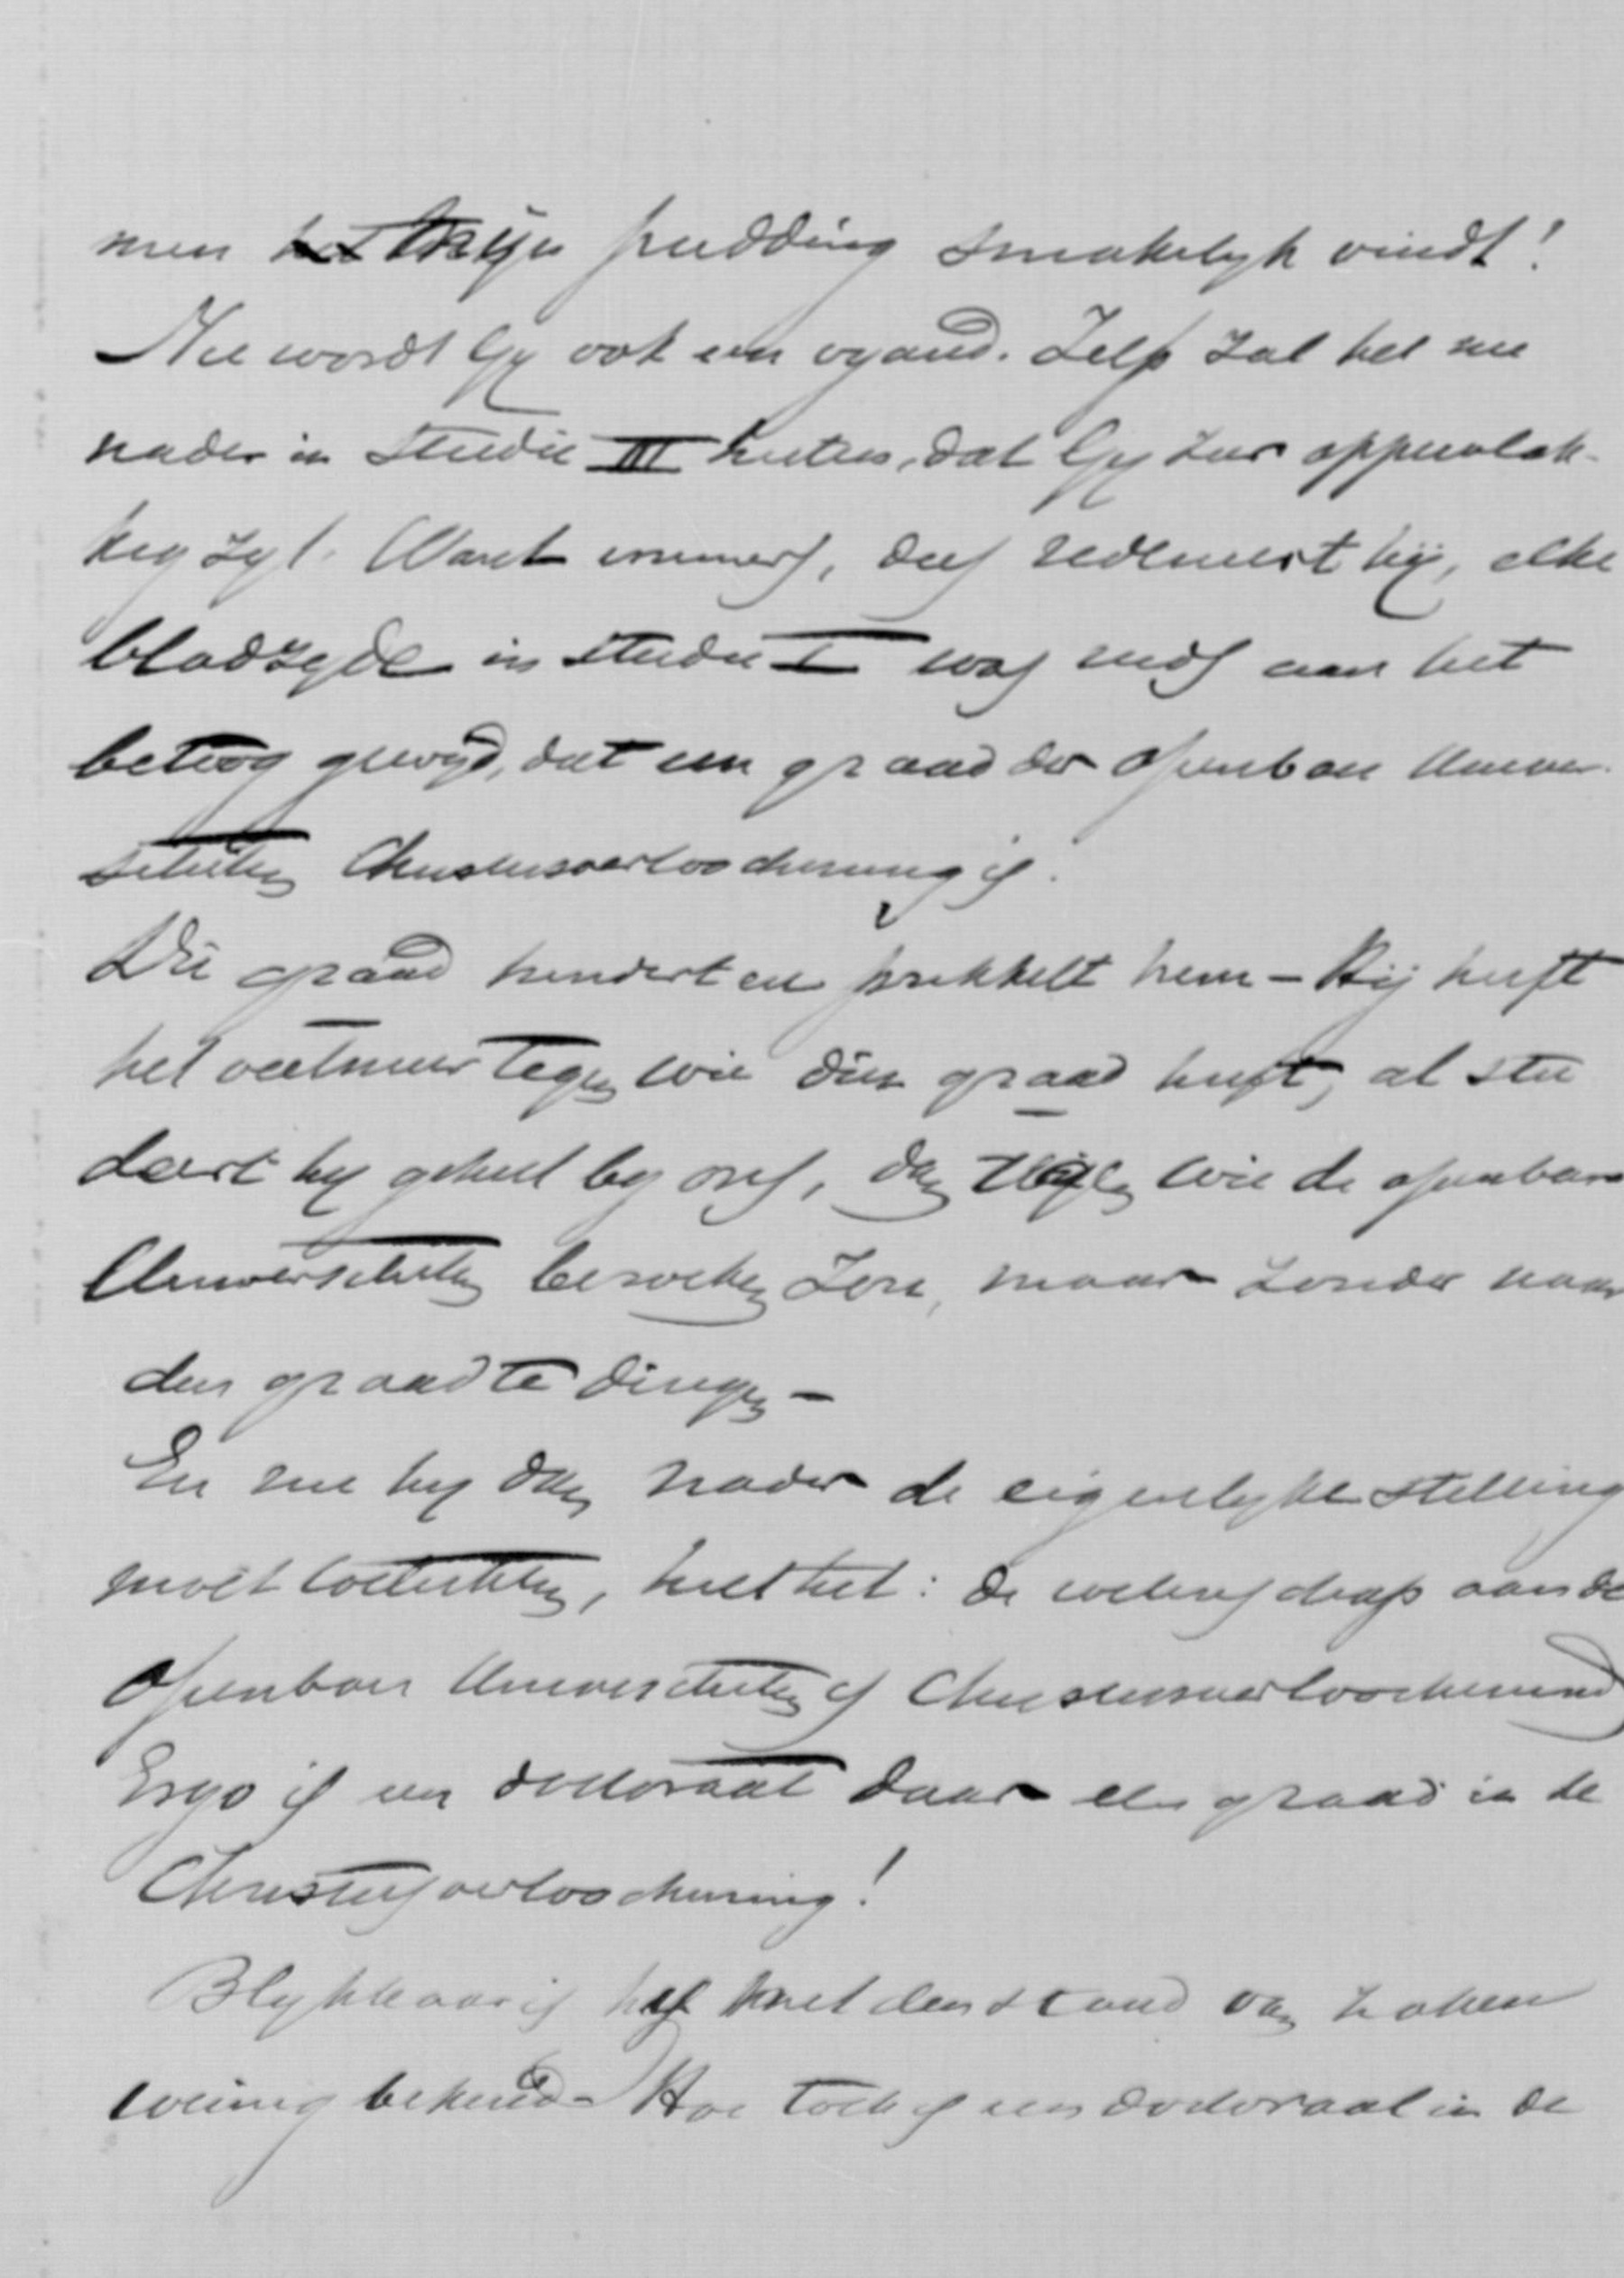 men zijn pudding smakelijk vindt!
Nu wordt Gy ook een vyand. Zelfs zal het nu
nader in Studie III heeten, dat Gy zeer oppervlak-
kig zyt. Want immers, dus redeneert hij, elke
bladzyde in studie I was reeds aan het
betoog gewyd, dat een graad der openbare Univer-
siteiten Christusverloochening is.
Die graad hindert en prikkelt hem – Hij heeft
het veelmeer tegen wie dien graad heeft, al stu
deert hy geheel by ons, dan tegen wie de openbare
Universiteiten bezoeken zou, maar zonder naar
den graad te dingen –
En nu hy dan nader de eigenlyke stelling
moet toelichten, heet het: de wetenschap aan de
openbare Universiteiten is Christusverloochenend
Ergo is een doctoraat daar een graad in de
Christusverloochening!
Blykbaar is hy met den stand van zaken
weinig bekend – Hoe toch is een doctoraat in de